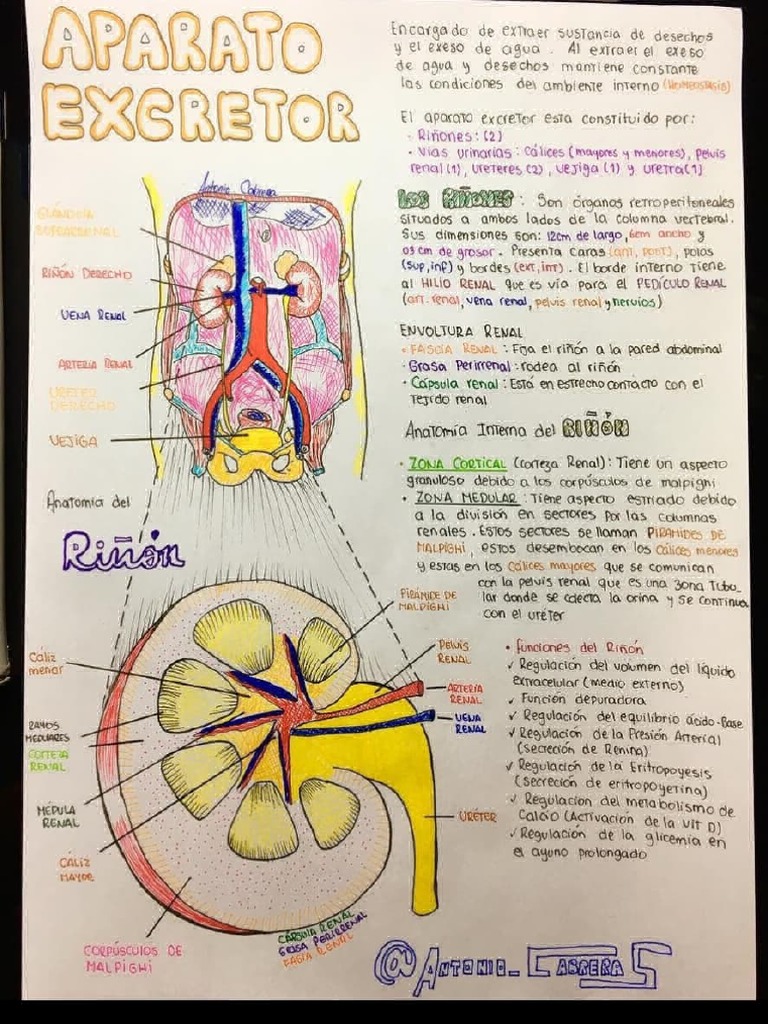 APARATO
EXCRETOR
Encargado de extraer sustancia de desechos
y el exeso de agua. Al extraer el exeso
de agua y desechos mantiene constante
las condiciones del ambiente interno (HOMEOSTASIS)
El aparato excretor esta constituido por:
• Riñones: (2)
• Vías urinarias: Cálices (mayores y menores), pelvis
renal (1), ureteres (2), vejiga (1) y uretra (1)
LOS RIÑONES: Son órganos retroperitoneales
situados a ambos lados de la columna vertebral.
Sus dimensiones son: 12cm de largo, 6cm ancho y
03 cm de grosor. Presenta caras (ant, post), polos
(sup, inf) y bordes (ext, int). El borde interno tiene
al HILIO RENAL que es vía para el PEDÍCULO RENAL
(art. renal, vena renal, pelvis renal y nervios)
ENVOLTURA RENAL
• FASCIA RENAL: Fija el riñón a la pared abdominal
• Grasa Perirrenal: rodea al riñón
• Cápsula renal: Está en estrecho contacto con el
Tejido renal
Anatomía Interna del RIÑÓN
• ZONA CORTICAL (corteza Renal): Tiene un aspecto
granuloso debido a los corpúsculos de malpigni
• ZONA MEDULAR: Tiene aspecto estriado debido
a la división en sectores por las columnas
renales. Estos sectores se llaman PIRAMIDES DE
MALPIGHI, estos desembocan en los cálices menores
y estas en los cálices mayores que se comunican
con la pelvis renal que es una zona Tubu_
lar donde se colecta la orina y se continua
con el uréter
• Funciones del Riñón
✓ Regulación del volumen del líquido
extracelular (medio externo)
✓ Función depuradora
✓ Regulación del equilibrio ácido-Base
✓ Regulación de la Presión Arterial
(secreción de Renina)
✓ Regulación de la Eritropoyesis
(secreción de eritropoyetina)
✓ Regulación del metabolismo de
Calcio (Activación de la vit D)
✓ Regulación de la glicemia en
el ayuno prolongado
Antonio Cabrera
GLÁNDULA
SUPRARRENAL
RIÑÓN DERECHO
VENA RENAL
ARTERIA RENAL
URETER
DERECHO
VEJIGA
Anatomía del
Riñón
PIRÁMIDE DE
MALPIGHI
PELVIS
RENAL
ARTERIA
RENAL
VENA
RENAL
URÉTER
Cáliz
menor
RAYOS
MEDULARES
CORTEZA
RENAL
MÉDULA
RENAL
CÁLIZ
MAYOR
CORPÚSCULOS DE
MALPIGHI
CÁPSULA RENAL
GRASA PERIRRENAL
FASIA RENAL
@ANTONIO_CABRERAS